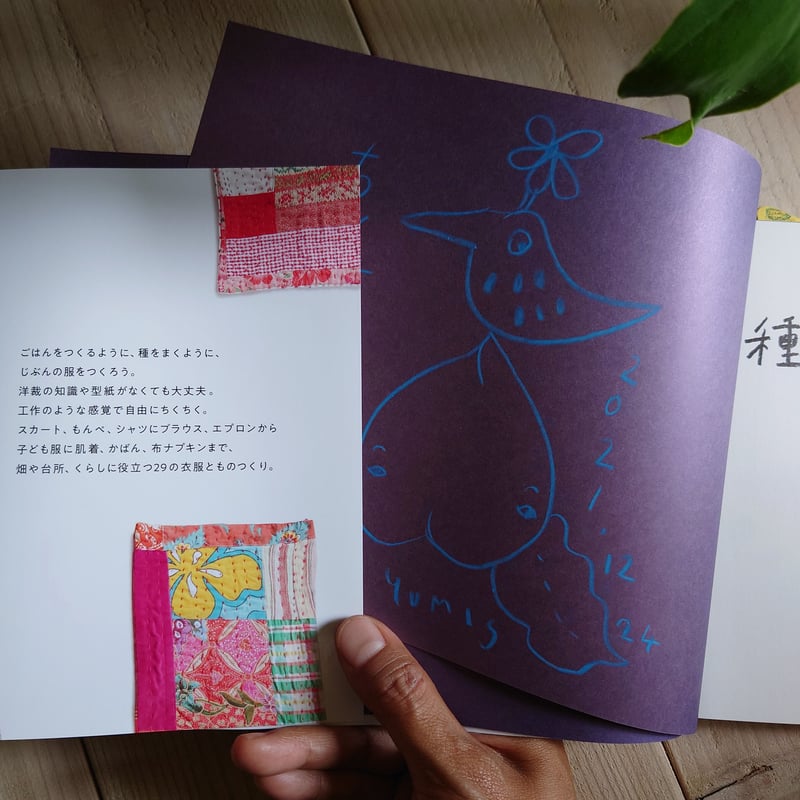 ごはんをつくるように、種をまくように、
じぶんの服をつくろう。
洋裁の知識や型紙がなくても大丈夫。
工作のような感覚で自由にちくちく。
スカート、もんぺ、シャツにブラウス、エプロンから
子ども服に肌着、かばん、布ナプキンまで、
畑や台所、くらしに役立つ29の衣服とものづくり。
2021.12
24
種